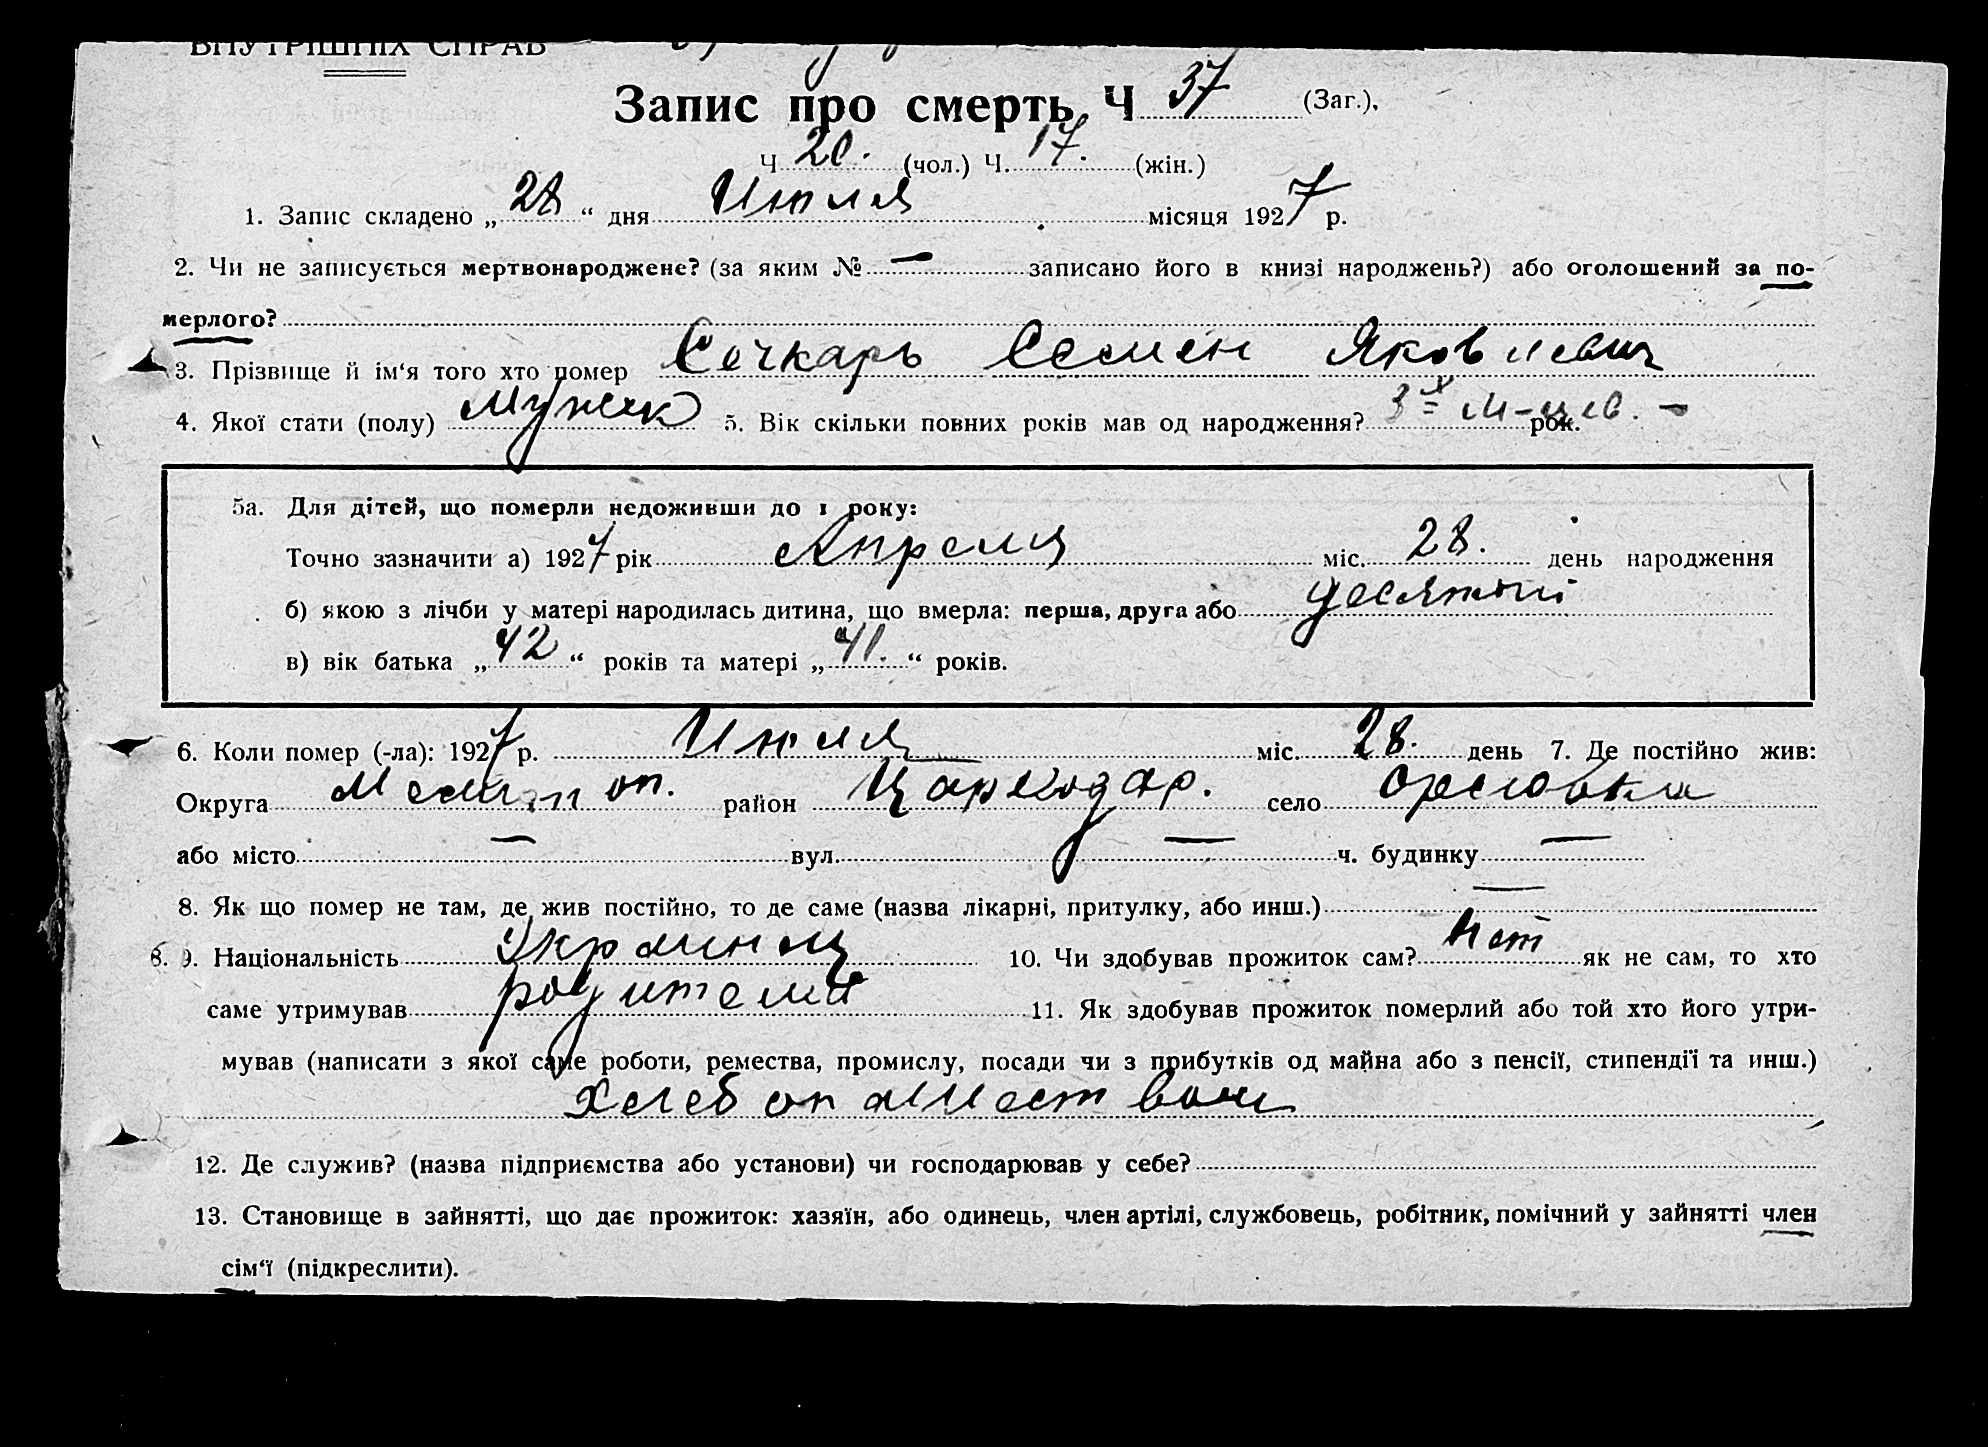 ВНУТРІШНІХ СПРАВ
Запис про смерть Ч 37 (Заг.),
Ч 20. (чол.) Ч. 17. (жін.)
1. Запис складено „ 28 “ дня Июля місяця 1927 р.
2. Чи не записується мертвонароджене? (за яким № — записано його в книзі народжень?) або оголошений за по-
мерлого?
3. Прізвище й ім‘я того хто помер Сечкарь Семен Яковлевич
4. Якої стати (полу) Мужск 5. Вік скільки повних років мав од народження? 3х м-цев. — рок.
5а. Для дітей, що померли недоживши до 1 року:
Точно зазначити а) 1927 рік Апреля міс. 28. день народження
б) якою з лічби у матері народилась дитина, що вмерла: перша, друга або десятый
в) вік батька „ 42 “ років та матері „ 41. “ років.
6. Коли помер (-ла): 1927 р. Июля міс. 28. день 7. Де постійно жив:
Округа Мелитоп. район село
або місто — вул. — ч. будинку —
8. Як що помер не там, де жив постійно, то де саме (назва лікарні, притулку, або инш.) —
8. 9. Національність Украинец 10. Чи здобував прожиток сам? Нет як не сам, то хто
саме утримував родители 11. Як здобував прожиток померлий або той хто його утри-
мував (написати з якої саме роботи, ремества, промислу, посади чи з прибутків од майна або з пенсії, стипендії та инш.)
12. Де служив? (назва підприємства або установи) чи господарював у себе?
13. Становище в зайнятті, що дає прожиток: хазяїн, або одинець, член артілі, службовець, робітник, помічний у зайнятті член
сім‘ї (підкреслити).